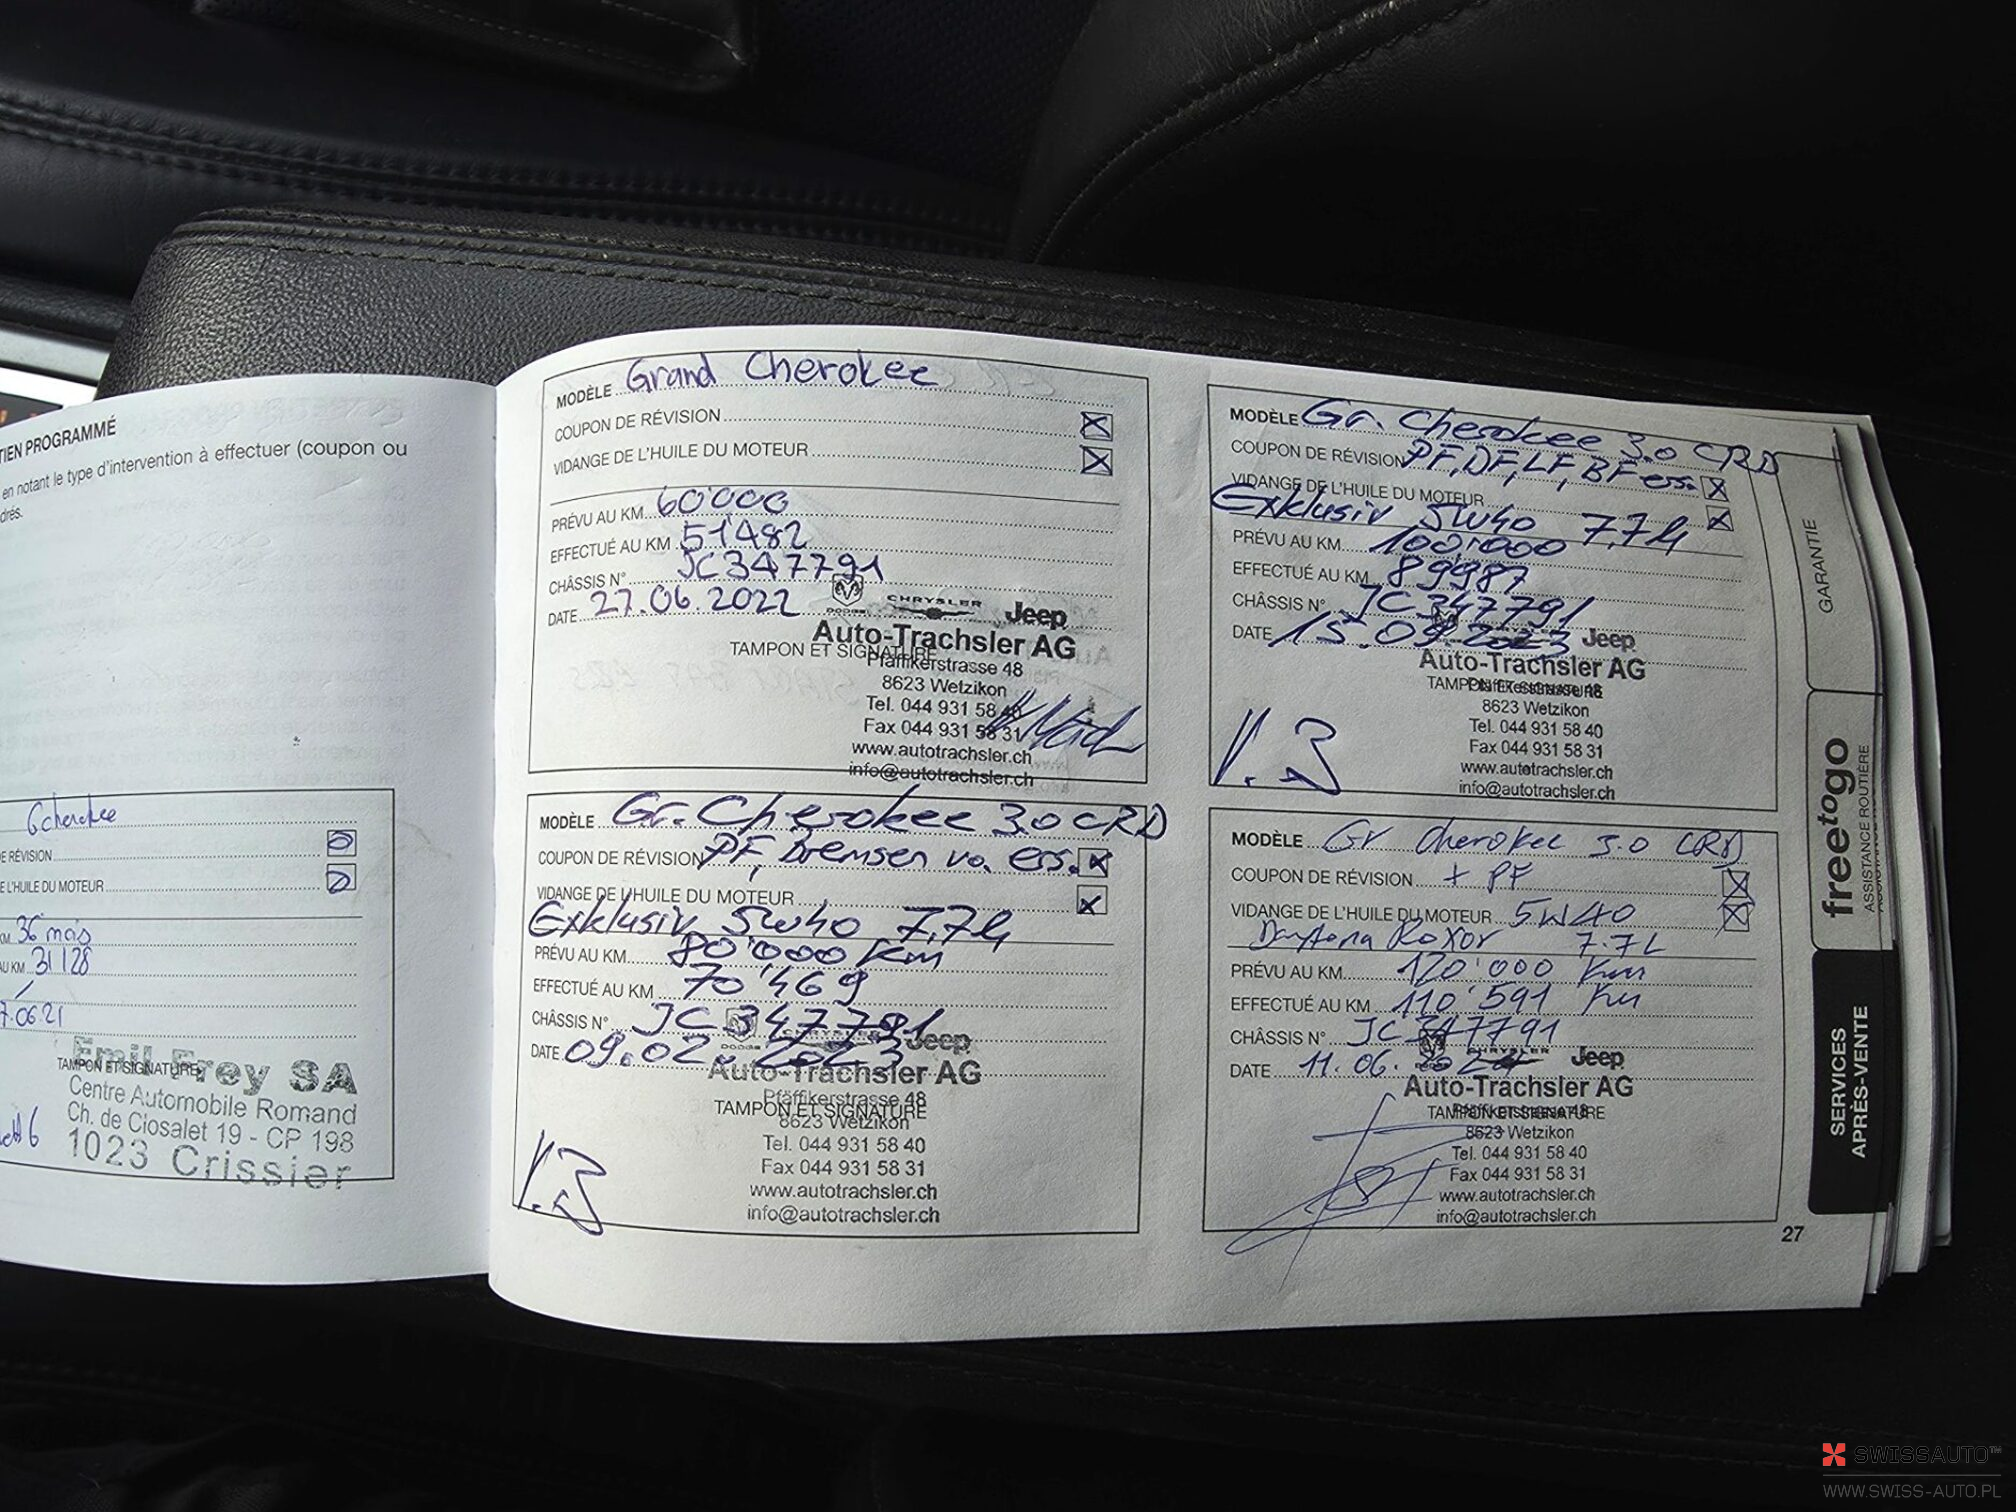 TIEN PROGRAMMÉ
en notant le type d'intervention à effectuer (coupon ou
drés.
Gcherokee
E RÉVISION
E L'HUILE DU MOTEUR
KM 36 mois
AU KM 31128
7.06.21
TAMPON ET SIGNATURE
Emil Frey SA
Centre Automobile Romand
Ch. de Ciosalet 19 - CP 198
1023 Crissier
MODÈLE Grand Cherokee
COUPON DE RÉVISION
VIDANGE DE L'HUILE DU MOTEUR
PRÉVU AU KM 60'000
EFFECTUÉ AU KM 51'482
CHÂSSIS N° JC347791
DATE 27.06.2022
DODGE CHRYSLER Jeep
Auto-Trachsler AG
TAMPON ET SIGNATURE
Pfäffikerstrasse 48
8623 Wetzikon
Tel. 044 931 58 40
Fax 044 931 58 31
www.autotrachsler.ch
info@autotrachsler.ch
MODÈLE Gr. Cherokee 3.0 CRD
COUPON DE RÉVISION PF, Bremsen vo. ers.
VIDANGE DE L'HUILE DU MOTEUR
Exklusiv 5W40 7.7L
PRÉVU AU KM 80'000 Km
EFFECTUÉ AU KM 70'469
CHÂSSIS N° JC347791
DATE 09.02.2023
DODGE CHRYSLER Jeep
Auto-Trachsler AG
Pfäffikerstrasse 48
TAMPON ET SIGNATURE
8623 Wetzikon
Tel. 044 931 58 40
Fax 044 931 58 31
www.autotrachsler.ch
info@autotrachsler.ch
MODÈLE Gr. Cherokee 3.0 CRD
COUPON DE RÉVISION PF, DF, LF, BF ers.
VIDANGE DE L'HUILE DU MOTEUR
Exklusiv 5W40 7.7L
PRÉVU AU KM 100'000
EFFECTUÉ AU KM 89987
CHÂSSIS N° JC347791
DATE 15.09.2023
Jeep
Auto-Trachsler AG
TAMPON ET SIGNATURE
Pfäffikerstrasse 48
8623 Wetzikon
Tel. 044 931 58 40
Fax 044 931 58 31
www.autotrachsler.ch
info@autotrachsler.ch
MODÈLE Gr Cherokee 3.0 CRD
COUPON DE RÉVISION + PF
VIDANGE DE L'HUILE DU MOTEUR 5W40
Daytona Roxor 7.7L
PRÉVU AU KM 120'000 Km
EFFECTUÉ AU KM 110'591 Km
CHÂSSIS N° JC347791
DATE 11.06.2024
CHRYSLER Jeep
Auto-Trachsler AG
TAMPON ET SIGNATURE
Pfäffikerstrasse 48
8623 Wetzikon
Tel. 044 931 58 40
Fax 044 931 58 31
www.autotrachsler.ch
info@autotrachsler.ch
27
GARANTIE
freetogo
ASSISTANCE ROUTIÈRE
SERVICES
APRÈS-VENTE
SWISSAUTO™
WWW.SWISS-AUTO.PL